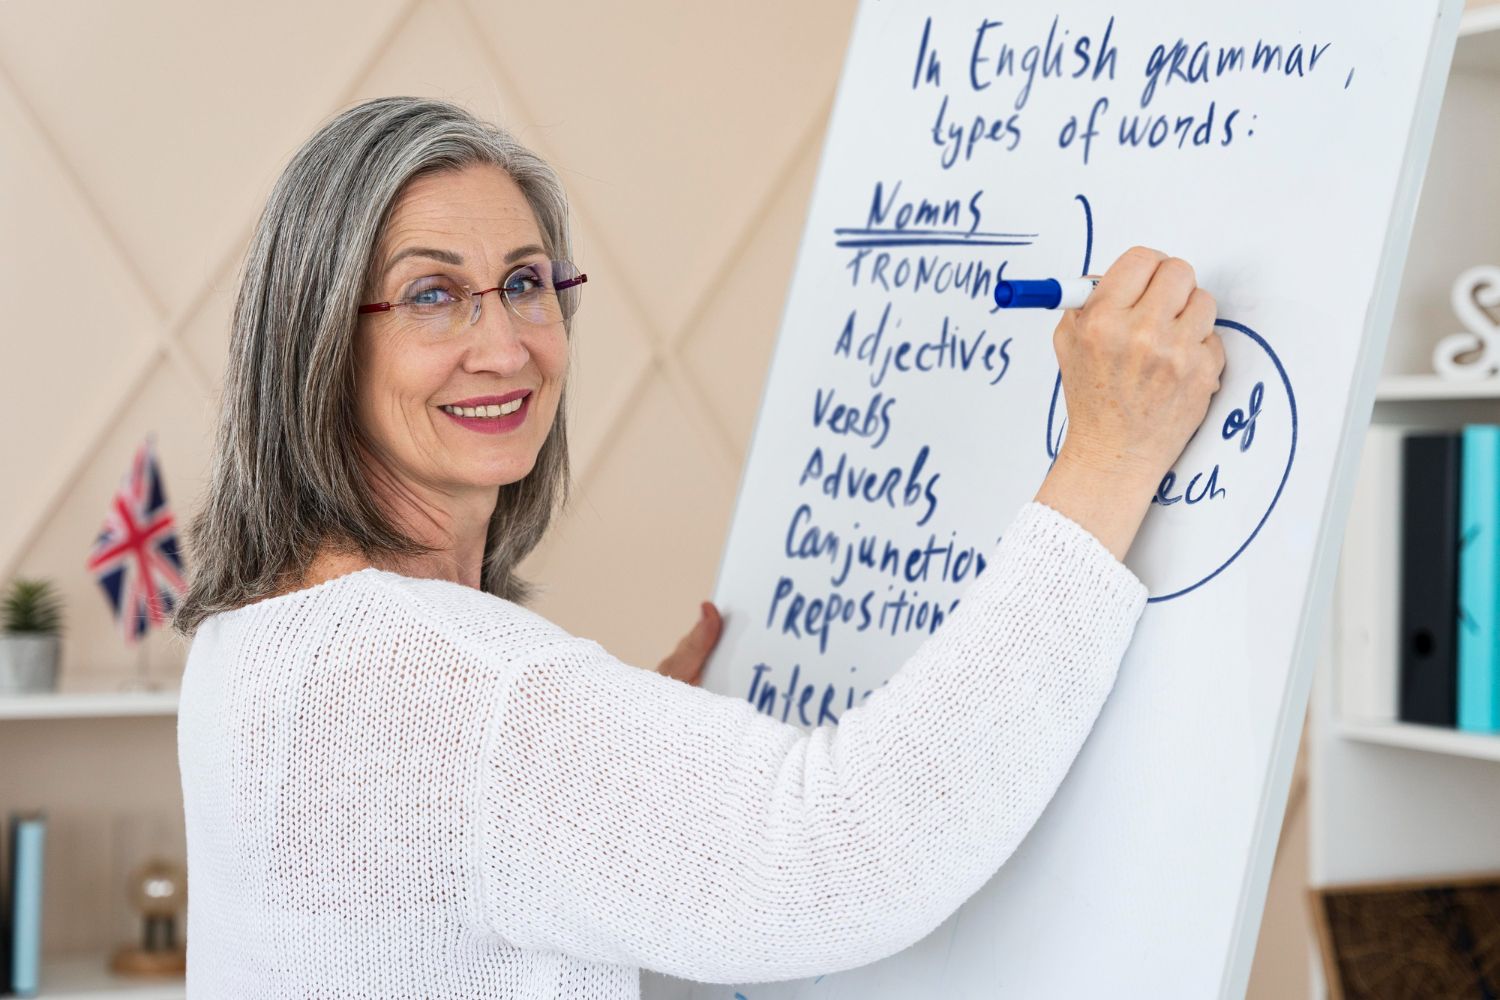 In English grammar,
types of words:
Nomns
PRONOUNS
Adjectives
Verbs
Adverbs
Conjunction
Prepositions
Interj
of
ech